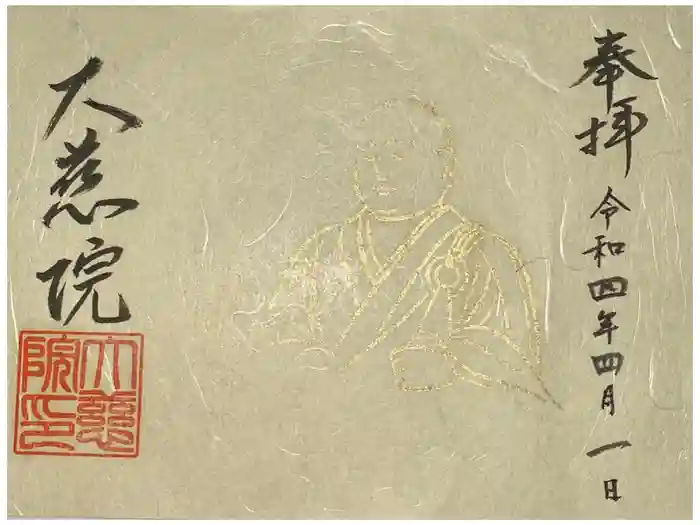 奉拝 令和四年四月一日
大慈院
大慈院印